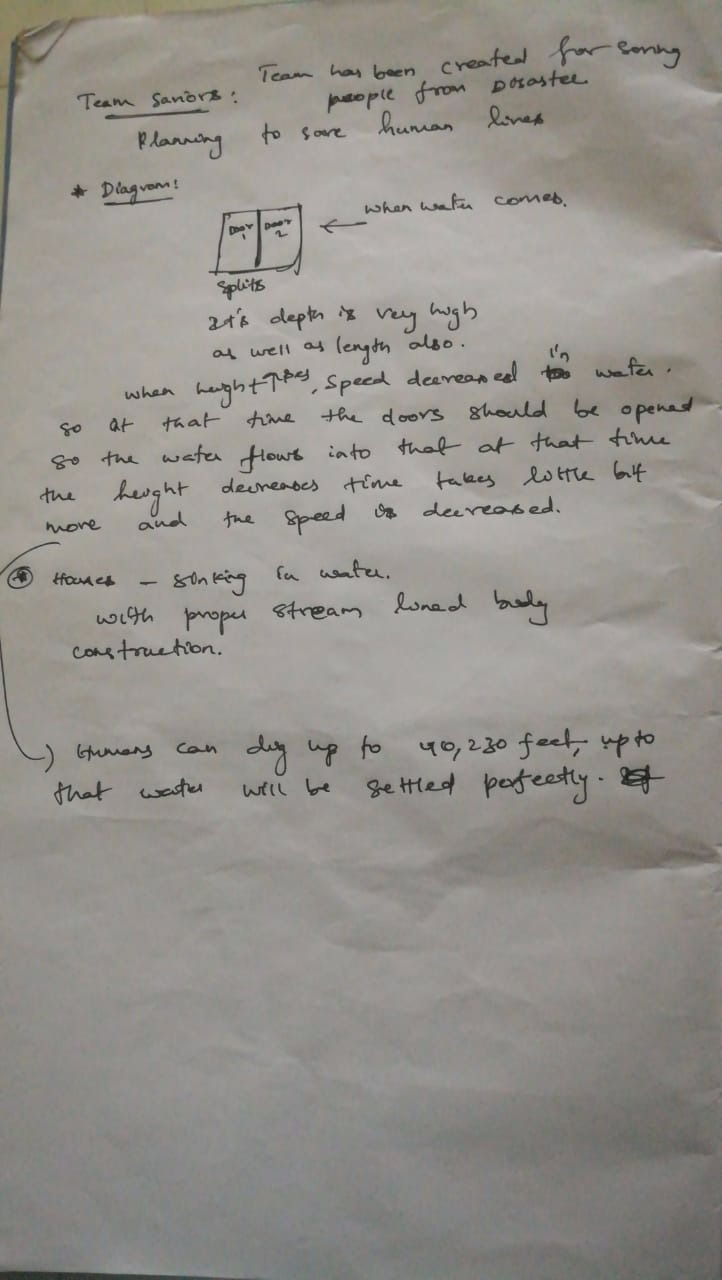 Team has been created for saving
Team Saviors: people from Disaster
Planning to save human lives
* Diagram:
when water comes.
Door 1 Door 2
Splits
It's depth is very high
as well as length also.
when height ↑ses, speed decreased in water.
so at that time the doors should be opened
so the water flows into that at that time
the height decreases time takes little bit
more and the speed is decreased.
* Houses - sinking in water.
with proper stream lined body
construction.
Humans can dig up to 40,230 feet, up to
that water will be settled perfectly.